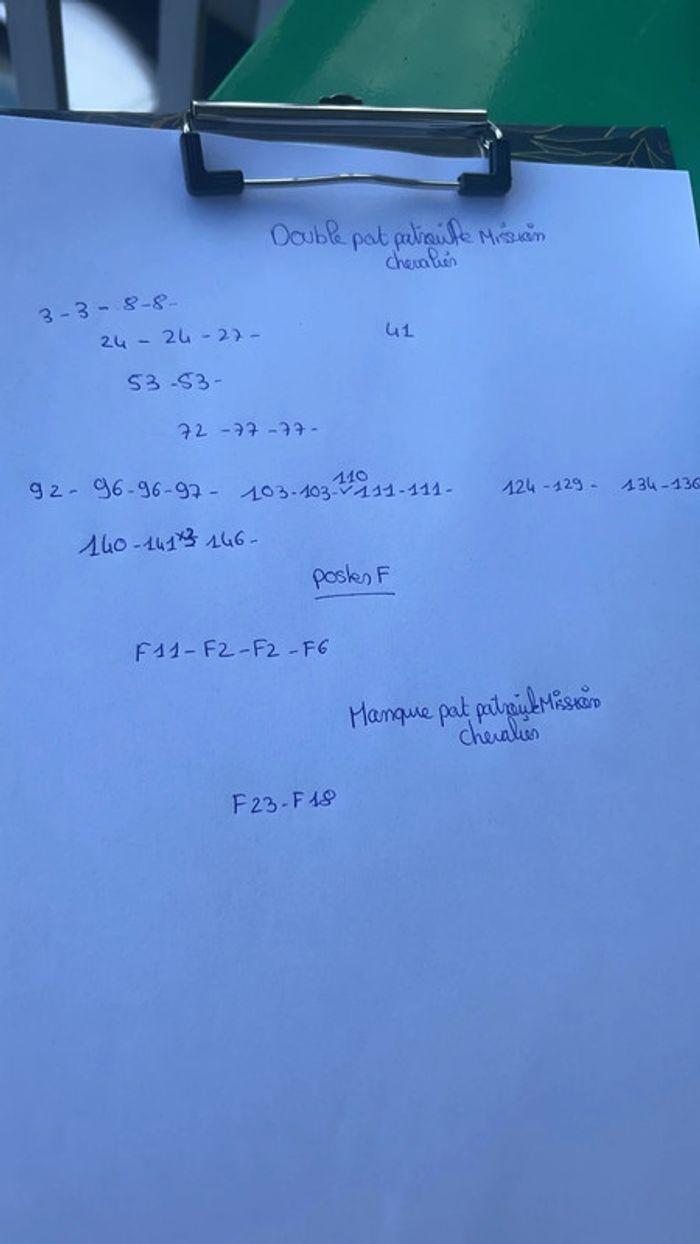 Double pat patrouille Mission
chevaliers
3-3-8-8-
24-24-27- 41
53-53-
72-77-77-
110
92-96-96-97- 103-103-✓111-111- 124-129- 134-136
140-141 146-
posters F
F11-F2-F2-F6
Manque pat patrouille Mission
chevaliers
F23-F18